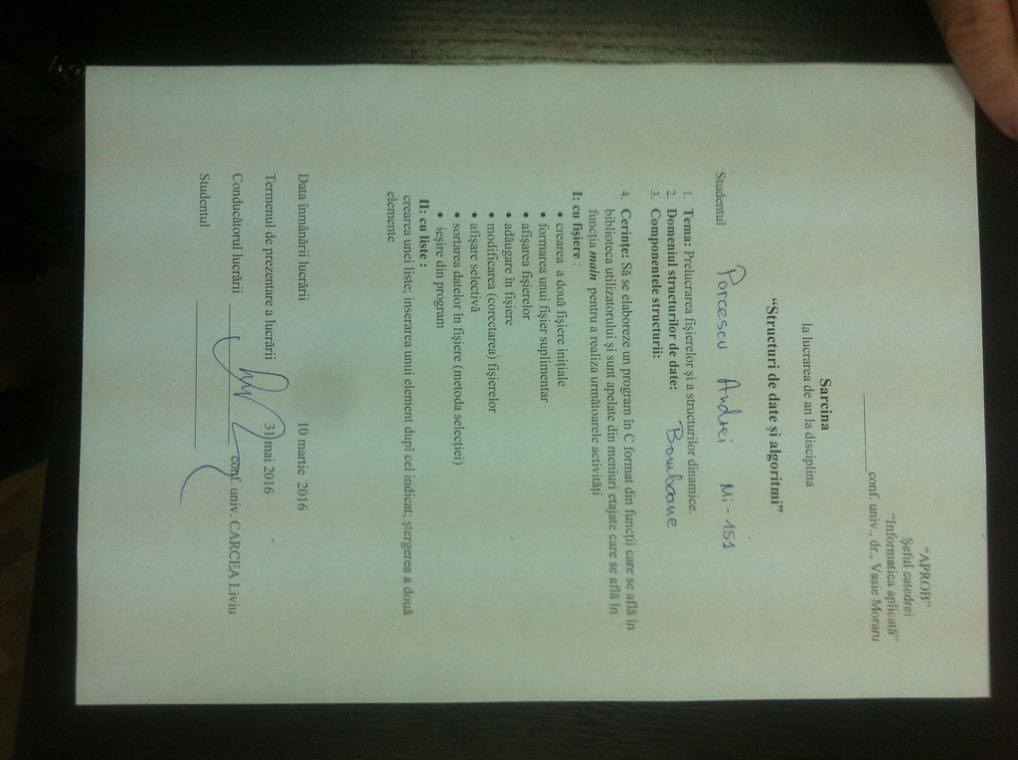 “APROB”
Şeful catedrei
“Informatica aplicată”
__________conf. univ., dr., Vasie Moraru
Sarcina
la lucrarea de an la disciplina
“Structuri de date şi algoritmi”
Studentul Porcescu Andrei Mi-151
1. Tema: Prelucrarea fişierelor şi a structurilor dinamice.
2. Domeniul structurilor de date: Bomboane
3. Componentele structurii:
4. Cerinţe: Să se elaboreze un program în C format din funcţii care se află în
biblioteca utilizatorului şi sunt apelate din meniuri etajate care se află în
funcţia main pentru a realiza următoarele activităţi
I: cu fişiere :
• crearea a două fişiere iniţiale
• formarea unui fişier suplimentar
• afişarea fişierelor
• adăugare în fişiere
• modificarea (corectarea) fişierelor
• afişare selectivă
• sortarea datelor în fişiere (metoda selecţiei)
• ieşire din program
II: cu liste :
crearea unei liste; inserarea unui element dupî cel indicat; ştergerea a două
elemente
Data înmânării lucrării 10 martie 2016
Termenul de prezentare a lucrării 31 mai 2016
Conducătorul lucrării ____________________ conf. univ. CARCEA Liviu
Studentul ____________________